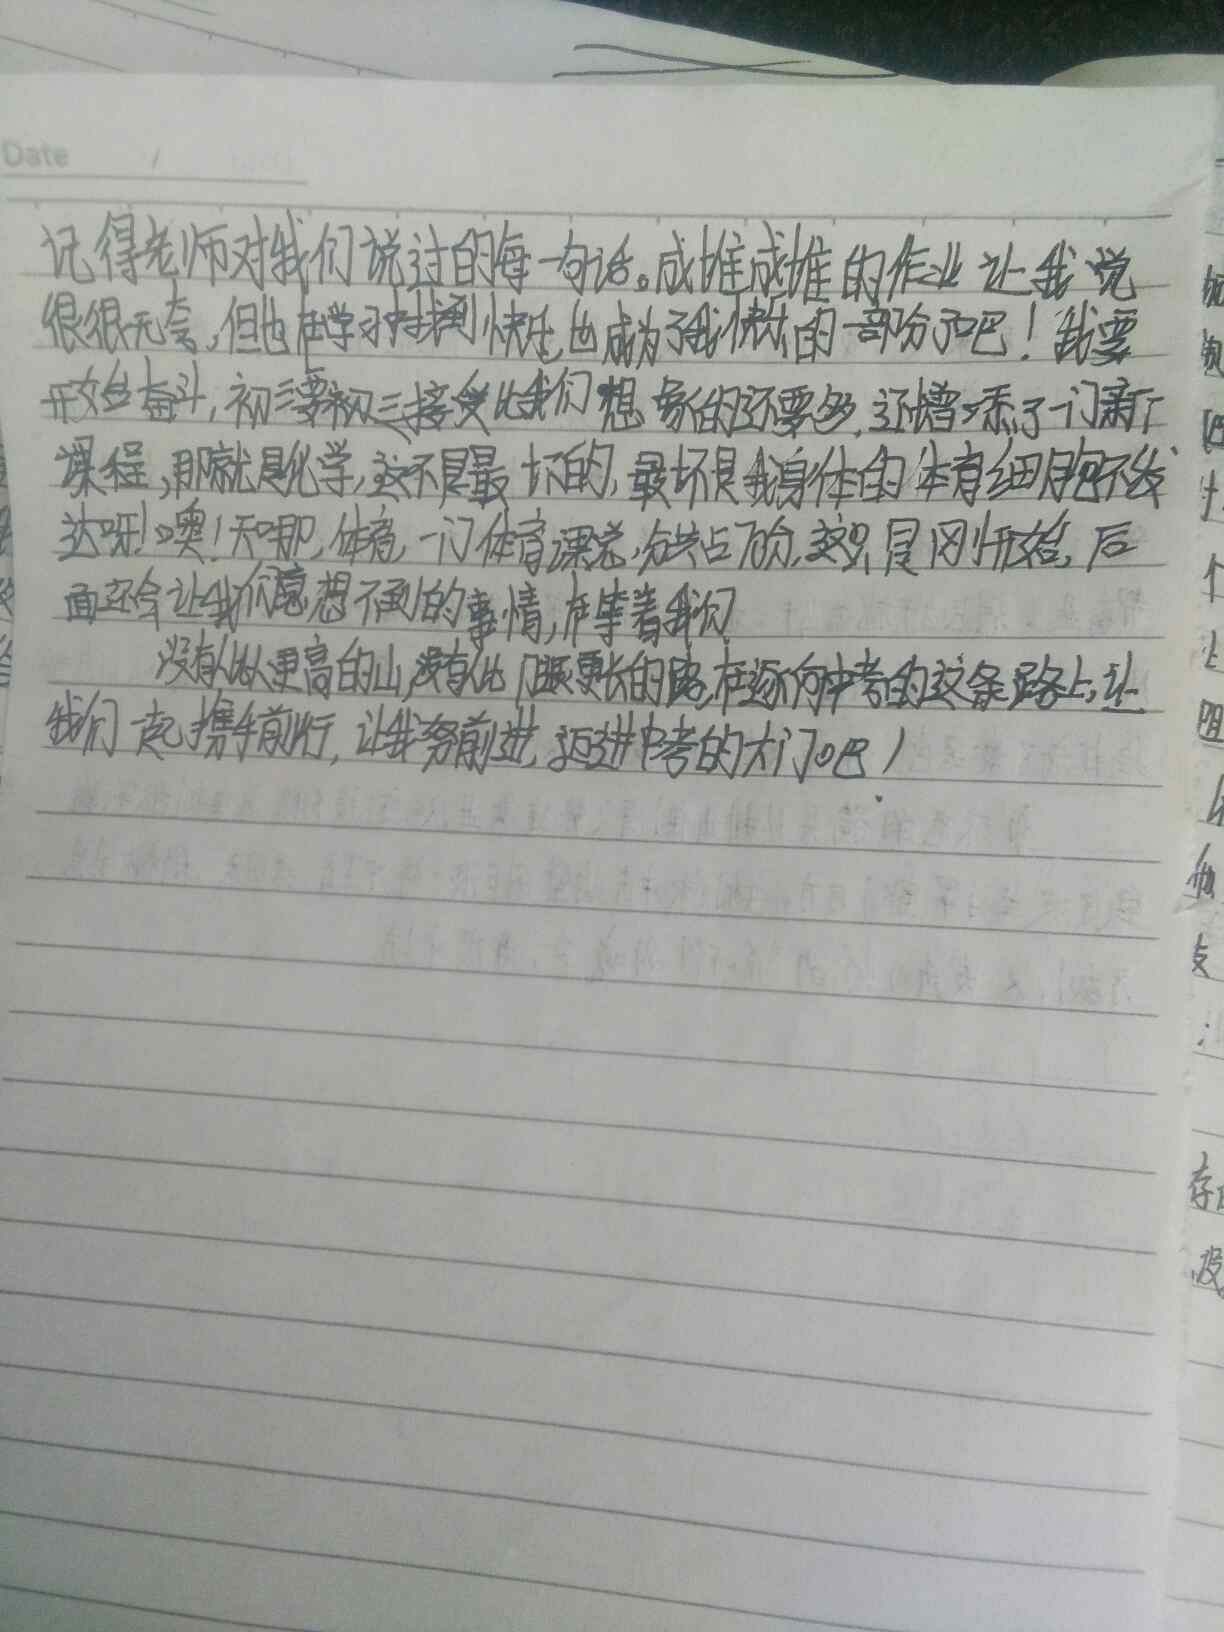 Date /
记得老师对我们说过的每一句话。成堆成堆的作业让我觉
很很无奈,但也在学习中找到快乐,也成为了我快乐的一部分了吧!我要
开始奋斗,初三要初三接受比我们想象的还要多,还增添了一门新
课程,那就是化学,这不是最坏的,最坏是我身体的体育细胞不发
达呀!噢!天哪,体育,一门体育课总分共占70分,这只是刚开始,后
面还会让我们意想不到的事情,在等着我们
没有比人更高的山,没有比脚更长的路,在迈向中考的这条路上,让
我们一起携手前行,让我努前进,迈进中考的大门吧!